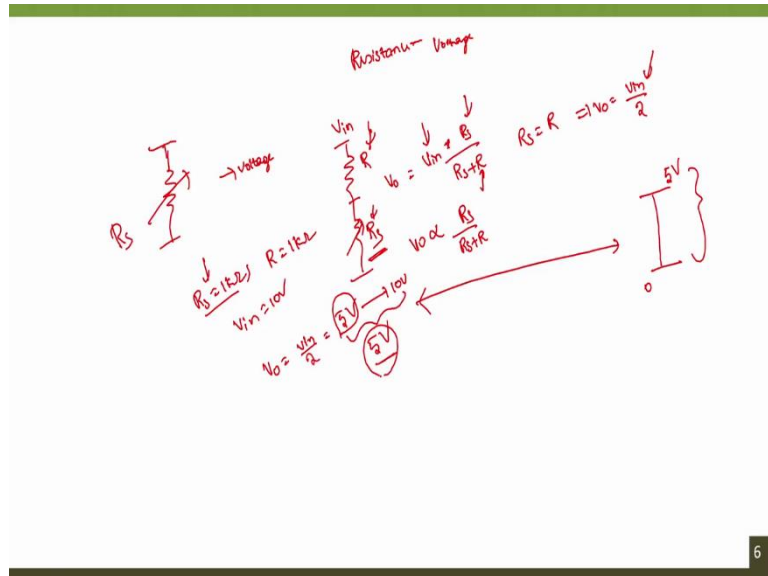 Resistance Voltage
Vin
R
→ voltage
Rs
Rs
Vo = Vin * Rs / Rs+R
Rs = R ⇒ Vo = Vin / 2
Vo ∝ Rs / Rs+R
Rs = 1kΩ, R = 1kΩ
Vin = 10V
Vo = Vin / 2 = 5V → 10V
5V
5V
0
6